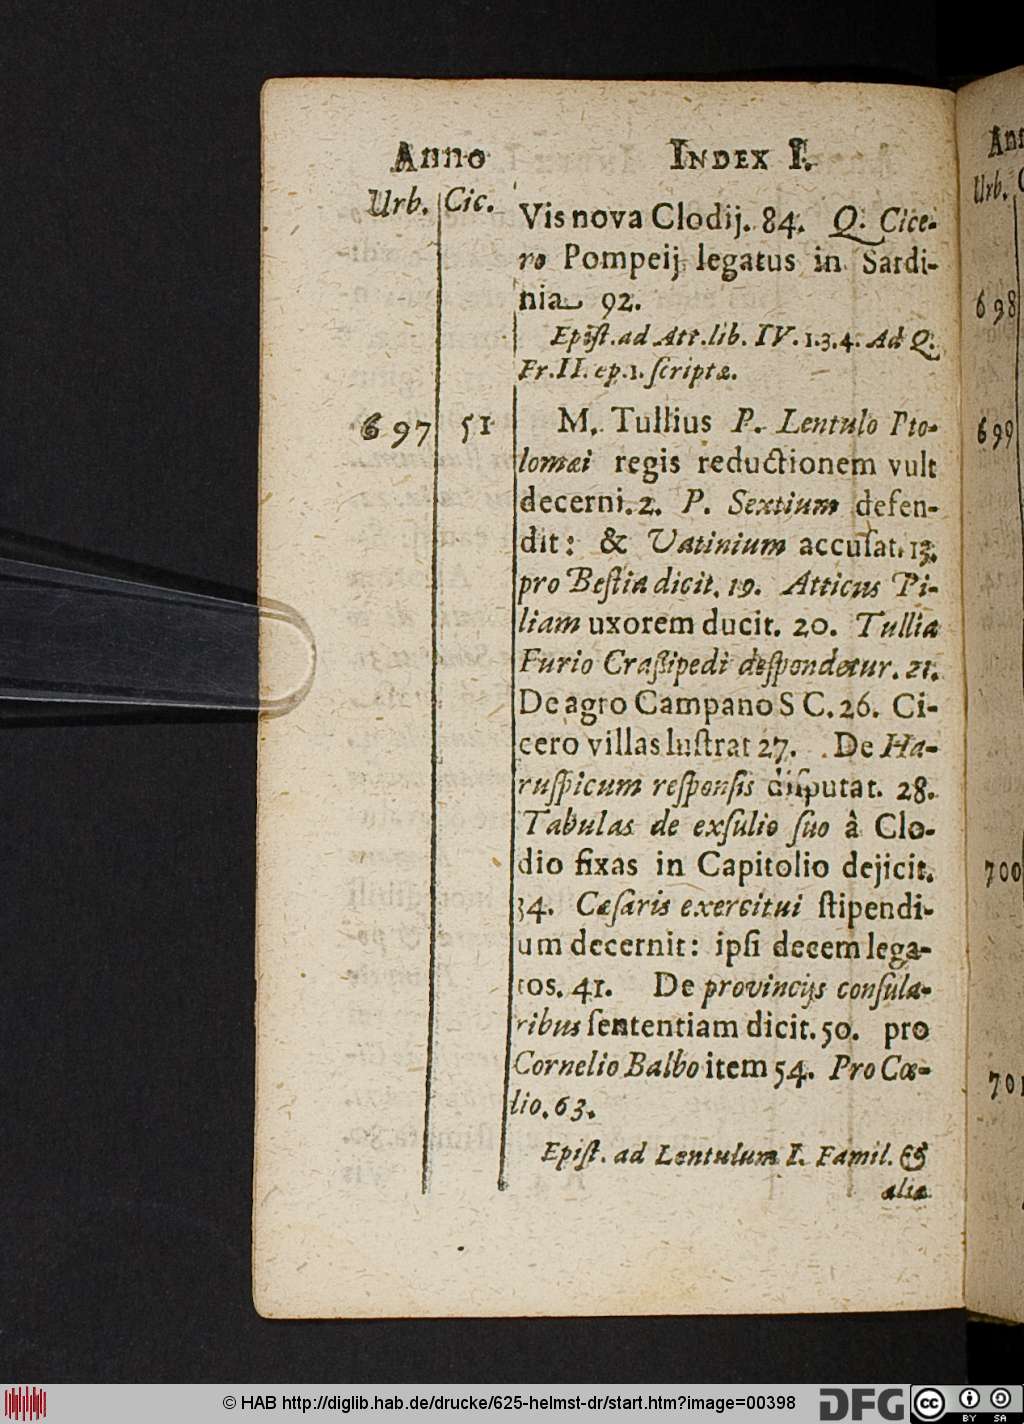 Anno INDEX I.
Urb. Cic.
Vis nova Clodij. 84. Q. Cice-
ro Pompeij legatus in Sardi-
nia 92.
Epist. ad Att. lib. IV. 1. 3. 4. Ad Q.
Fr. II. ep. 1. scriptæ.
697 51 M. Tullius P. Lentulo Pto-
lomæi regis reductionem vult
decerni. 2. P. Sextium defen-
dit: & Vatinium accusat. 13.
pro Bestia dicit. 19. Atticus Pi-
liam uxorem ducit. 20. Tullia
Furio Crassipedi despondetur. 21.
De agro Campano S C. 26. Ci-
cero villas lustrat 27. De Ha-
ruspicum responsis disputat. 28.
Tabulas de exsulio suo â Clo-
dio fixas in Capitolio dejicit.
34. Cæsaris exercitui stipendi-
um decernit: ipsi decem lega-
tos. 41. De provincijs consula-
ribus sententiam dicit. 50. pro
Cornelio Balbo item 54. Pro Cœ-
lio. 63.
Epist. ad Lentulum I. Famil. &
aliæ
Ann
Urb.
698
699
700
701
© HAB http://diglib.hab.de/drucke/625-helmst-dr/start.htm?image=00398
DFG
cc BY SA